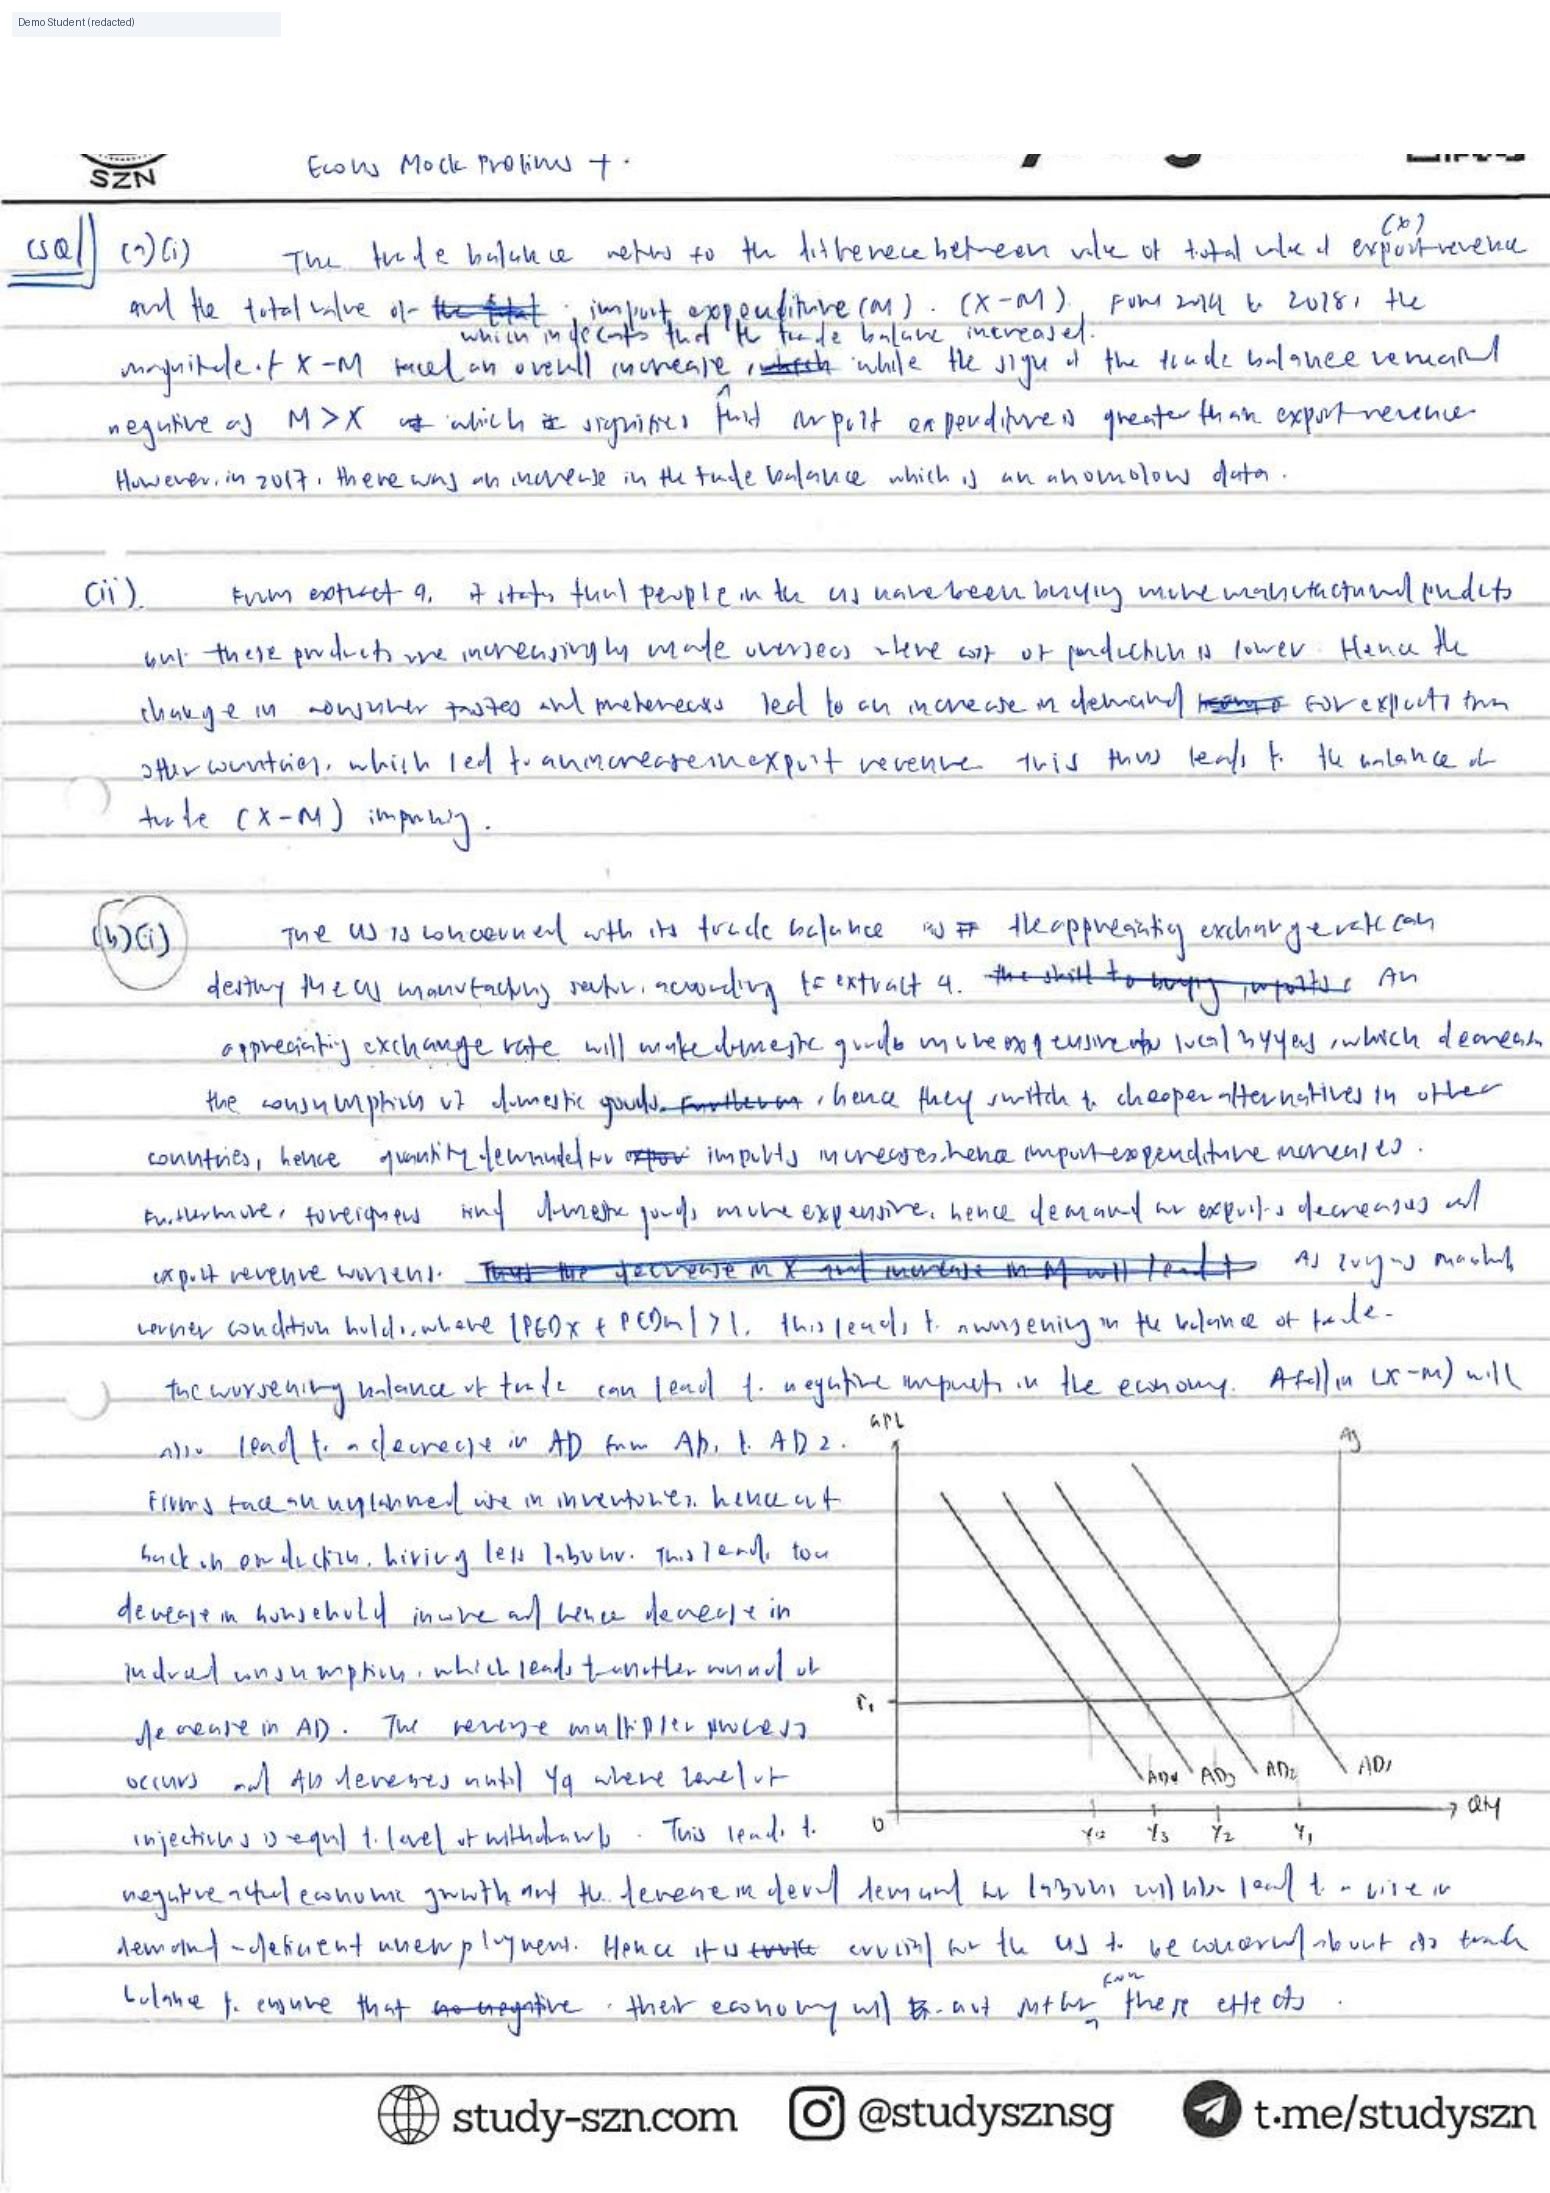 Demo Student (redacted)
SZN
Econs Mock Prelims +.
CSQ1 (a)(i) The trade balance refers to the difference between value of total value of export revenue (X)
and the total value of the total import expenditure (M). (X-M). From 2014 to 2018, the
which indicates that the trade balance increased.
magnitude of X-M faced an overall increase, which while the sign of the trade balance remained
negative as M>X which is signifies that import expenditure is greater than export revenue
However, in 2017, there was an increase in the trade balance which is an anomolous data.
(ii). From extract 9, it states that people in the US have been buying more manufactured products
but these products are increasingly made overseas where cost of production is lower. Hence the
change in consumer tastes and preferences led to an increase in demand for exports from
other countries, which led to an increase in export revenue this thus leads to the balance of
trade (X-M) improving.
(b)(i) The US is concerned with its trade balance as the appreciating exchange rate can
destroy the US manufacturing sector, according to extract 4. the shift to buying imports An
appreciating exchange rate will make domestic goods more expensive to local buyers, which decreases
the consumption of domestic goods. Furthermore, hence they switch to cheaper alternatives in other
countries, hence quantity demanded for imports increases, hence import expenditure increases.
Furthermore, foreigners find domestic goods more expensive, hence demand for exports decreases and
export revenue worsens. Thus the decrease in X and increase in M will lead t As long as Marshall
Lerner condition holds, where |PEDx + PEDm| > 1, this leads to a worsening in the balance of trade.
The worsening balance of trade can lead to negative impacts in the economy. A fall in (X-M) will
also lead to a decrease in AD from AD1 to AD2.
Firms face an unplanned rise in inventories, hence cut
back on production, hiring less labour. This leads to a
decrease in household income and hence decrease in
induced consumption, which leads to another round of
decrease in AD. The reverse multiplier process
occurs and AD decreases until Y4 where level of
injections is equal to level of withdrawals. This leads to
GPL
AS
P1
AD4 AD3 AD2 AD1
0
Y4 Y3 Y2 Y1
negative actual economic growth and the decrease in derived demand for labour will also lead to a rise in
demand-deficient unemployment. Hence it is crucial for the US to be concerned about its trade
balance to ensure that no negative their economy will not suffer from these effects.
study-szn.com @studysznsg t.me/studyszn